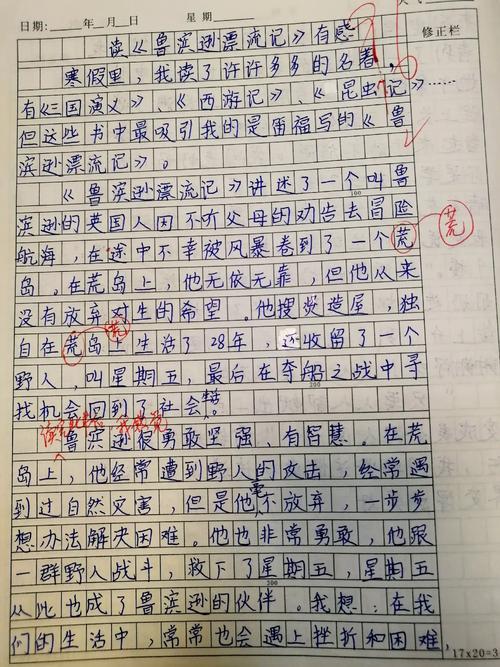 日期: 年 月 日 星期
修正栏
读《鲁滨逊漂流记》有感
寒假里,我读了许许多多的名著,
有《三国演义》、《西游记》、《昆虫记》……
但这些书中最吸引我的是笛福写的《鲁
滨逊漂流记》。
《鲁滨逊漂流记》讲述了一个叫鲁
滨逊的英国人因不听父母的劝告去冒险
航海,在途中不幸被风暴卷到了一个荒
荒
岛。在荒岛上,他无依无靠,但他从来
没有放弃对生的希望。他搜 造屋,独
荒
自在荒岛上生活了28年,还收留了一个
野人,叫星期五,最后在夺船之战中寻
找机会回到了社会。
鲁滨逊很勇敢坚强、有智慧。在荒
岛上,他经常遭到野人的攻击,经常遇
到过自然灾害,但是他不放弃,一步步
想办法解决困难。他也非常勇敢,他跟
一群野人战斗,救下了星期五,星期五
从此也成了鲁滨逊的伙伴。我想:在我
们的生活中,常常也会遇上挫折和困难,
100
200
300
17×20=3